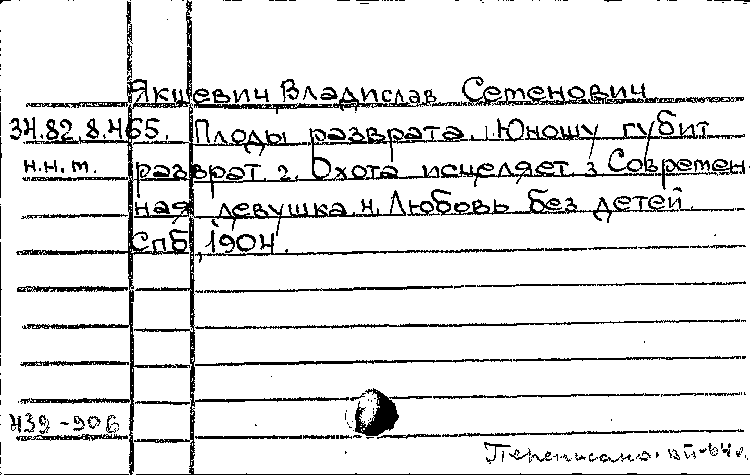 Якшевич Владислав Семенович
34.82.8.465. Плоды разврата. 1. Юношу губит
н.н.т. разврат 2. Охота исцеляет 3 Современ-
ная девушка. 4. Любовь без детей.
Спб, 1904.
439-906
Переписано.